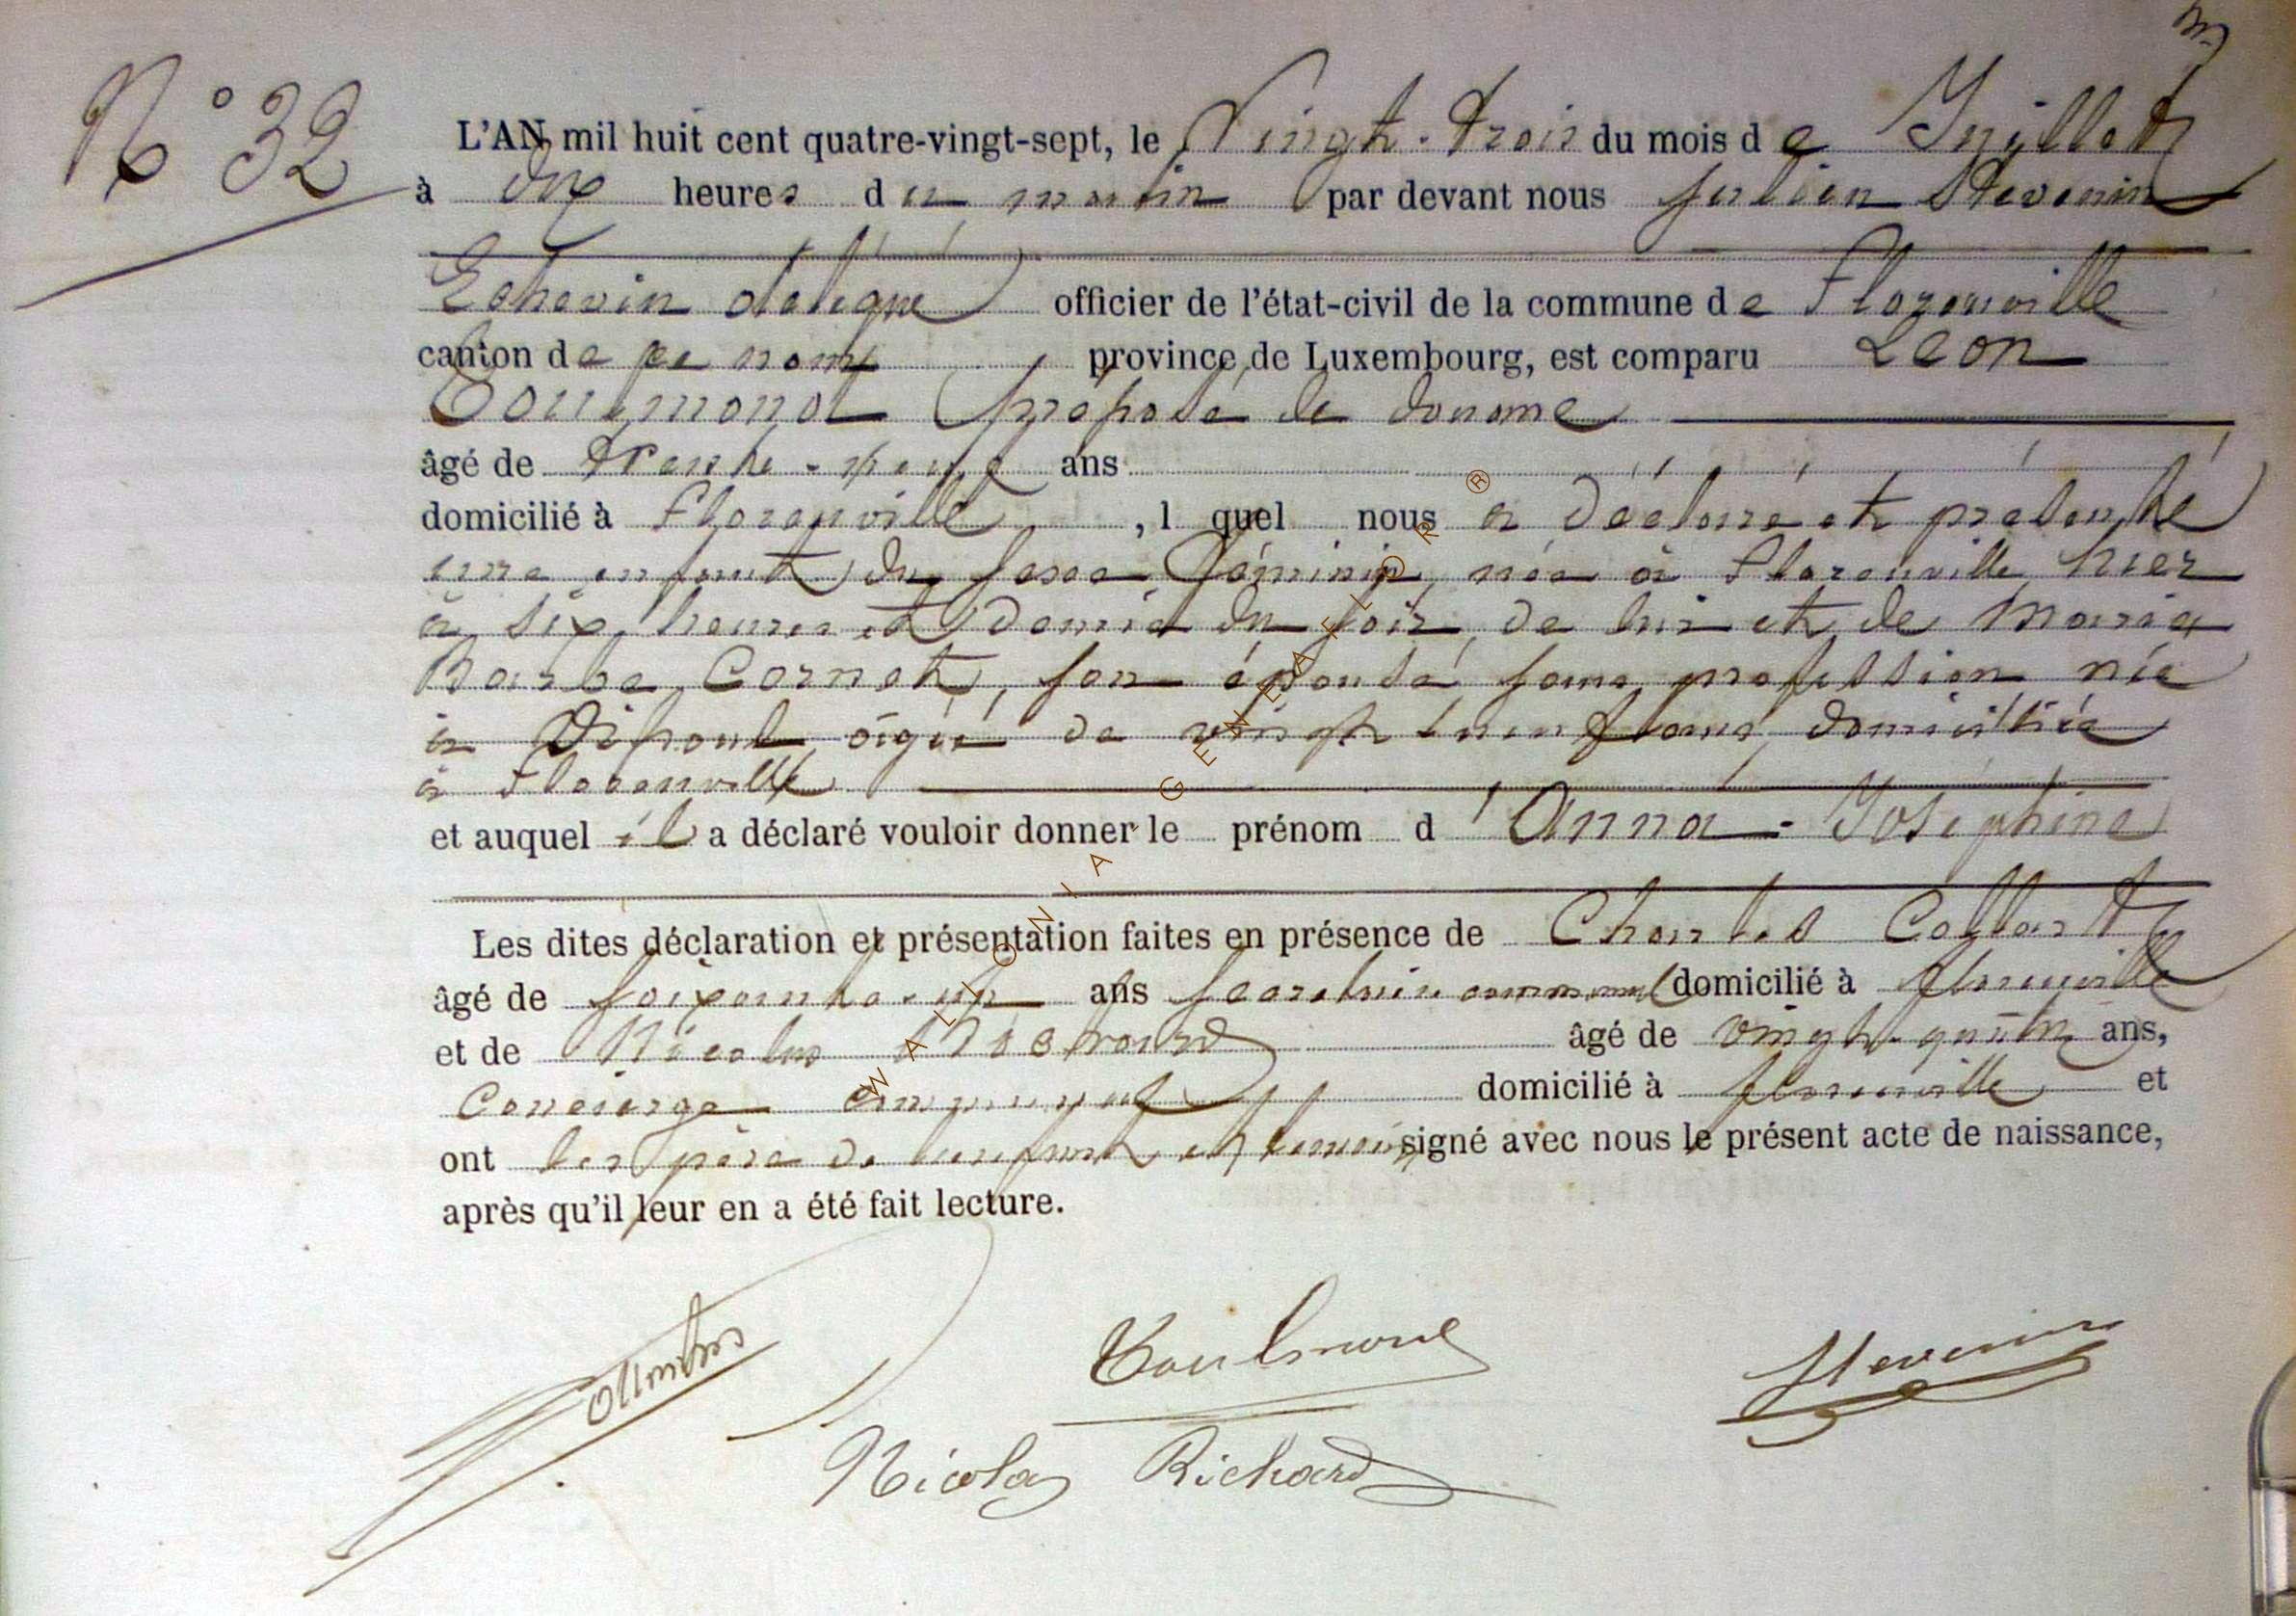 N° 32
L'AN mil huit cent quatre-vingt-sept, le Vingt-trois du mois de Juillet
à dix heures du matin par devant nous Julien Stevenin
Echevin délégué officier de l'état-civil de la commune de Florenville
canton de ce nom, province de Luxembourg, est comparu Léon
Toulmond préposé de douane
âgé de trente-neuf ans
domicilié à Florenville, l quel nous a déclaré et présenté
une enfant du sexe féminin, née à Florenville hier
à six heures et demie du soir, de lui et de Maria
Barbe Cornet, son épouse sans profession née
à âgée de vingt neuf ans, domiciliée
à Florenville
et auquel il a déclaré vouloir donner le prénom d'Anna-Joséphine
Les dites déclaration et présentation faites en présence de Charles Collart
âgé de soixante-un ans secrétaire communal domicilié à Florenville
et de Nicolas Richard âgé de vingt-quatre ans,
Concierge communal domicilié à florenville et
ont les père de l'enfant et témoins signé avec nous le présent acte de naissance,
après qu'il leur en a été fait lecture.
Toulmond
Stevenin
Nicolas Richard
WALLONIA GENEAFLOR ®